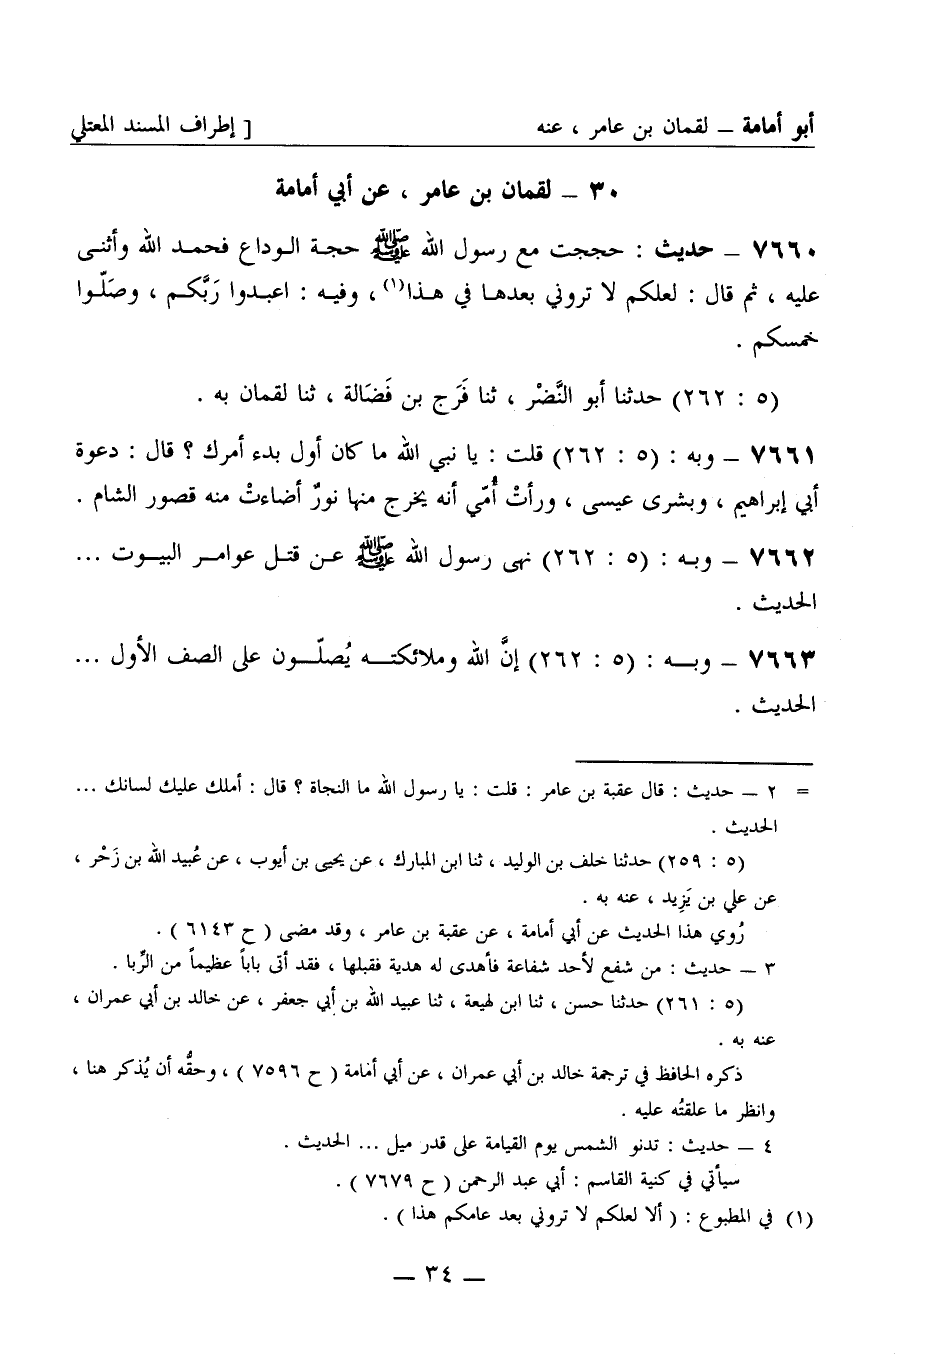 أبو أمامة ــ لقمان بن عامر ، عنه [ إطراف المسند المعتلي
٣٠ ــ لقمان بن عامر ، عن أبي أمامة
٧٦٦٠ ــ حديث : حججت مع رسول الله ﷺ حجة الوداع فحمد الله وأثنى
عليه ، ثم قال : لعلكم لا تروني بعدها في هذا(١) ، وفيه : اعبدوا رَبَّكم ، وصَلّوا
خمسكم .
(٥ : ٢٦٢) حدثنا أبو النَّضْر ، ثنا فَرَج بن فَضَالة ، ثنا لقمان به .
٧٦٦١ ــ وبه : (٥ : ٢٦٢) قلت : يا نبي الله ما كان أول بدء أمرك ؟ قال : دعوة
أبي إبراهيم ، وبشرى عيسى ، ورأتْ أُمّي أنه يخرج منها نورٌ أضاءتْ منه قصور الشام .
٧٦٦٢ ــ وبه : (٥ : ٢٦٢) نهى رسول الله ﷺ عن قتل عوامر البيوت ...
الحديث .
٧٦٦٣ ــ وبه : (٥ : ٢٦٢) إنَّ الله وملائكته يُصلّون على الصف الأول ...
الحديث .
= ٢ ــ حديث : قال عقبة بن عامر : قلت : يا رسول الله ما النجاة ؟ قال : أملك عليك لسانك ...
الحديث .
(٥ : ٢٥٩) حدثنا خلف بن الوليد ، ثنا ابن المبارك ، عن يحيى بن أيوب ، عن عُبيد الله بن زَحْر ،
عن علي بن يَزِيد ، عنه به .
رُوي هذا الحديث عن أبي أمامة ، عن عقبة بن عامر ، وقد مضى ( ح ٦١٤٣ ) .
٣ ــ حديث : من شفع لأحد شفاعة فأهدى له هدية فقبلها ، فقد أتى باباً عظيماً من الرِّبا .
(٥ : ٢٦١) حدثنا حسن ، ثنا ابن لهيعة ، ثنا عبيد الله بن أبي جعفر ، عن خالد بن أبي عمران ،
عنه به .
ذكره الحافظ في ترجمة خالد بن أبي عمران ، عن أبي أمامة ( ح ٧٥٩٦ ) ، وحقُّه أن يُذكر هنا ،
وانظر ما علقتُه عليه .
٤ ــ حديث : تدنو الشمس يوم القيامة على قدر ميل ... الحديث .
سيأتي في كنية القاسم : أبي عبد الرحمن ( ح ٧٦٧٩ ) .
(١) في المطبوع : ( ألا لعلكم لا تروني بعد عامكم هذا ) .
ــ ٣٤ ــ